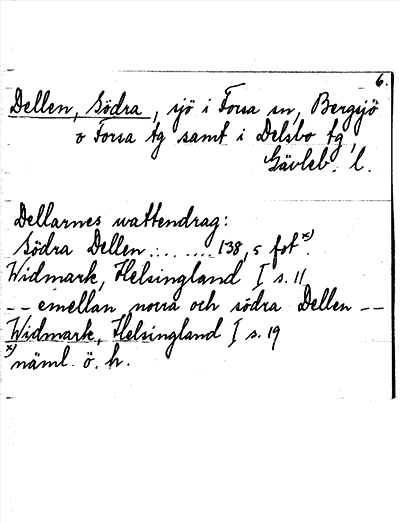 6.
Dellen, Södra, sjö i Forsa sn, Bergsjö
o Forsa tg samt i Delsbo tg,
Gävleb. l.
Dellarnes wattendrag:
Södra Dellen ........ 138,5 fot x).
Widmark, Helsingland I s. 11
-- emellan norra och södra Dellen --
Widmark, Helsingland I s. 19
x) näml. ö. h.